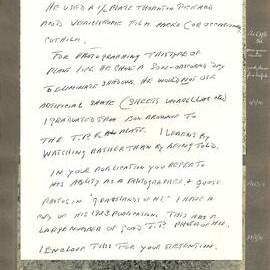 HE USED A 1/2 PLATE THORNTON PICKARD
AND VERICHROME FILM PACKS (OR OCCASIONAL
CUT FILM.
FOR PHOTOGRAPHING THIS TYPE OF
PLANT LIFE HE CHOSE A SUN-OBSCURED DAY
TO ELIMINATE SHADOWS. HE WOULD NOT USE
ARTIFICIAL SHADE (SHEETS UMBRELLAS etc)
I GRADUATED FROM BOX BROWNIE TO
THE T.P. & PLATE. I LEARNT BY
WATCHING RATHER THAN BY BEING TOLD.
IN YOUR PUBLICATION YOU REFER TO
HIS ABILITY AS A PHOTOGRAPHER, & QUOTE
PHOTOS IN "GRASSLANDS OF NZ." I HAVE A
COPY OF HIS 1923 PUBLICATION. THIS HAS A
LARGE NUMBER OF GOOD T.P. PHOTOS OF HIS.
I ENCLOSE THIS FOR YOUR RETENTION.